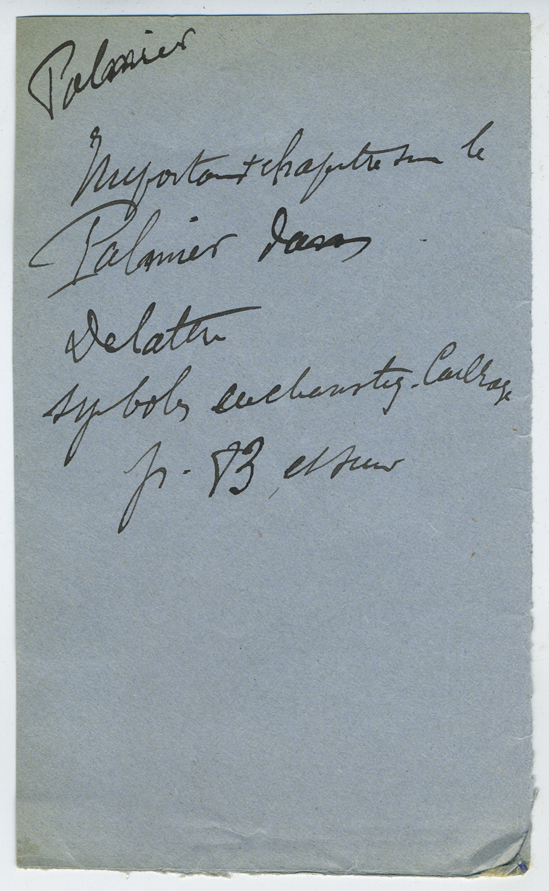 Palmier
Important chapitre sur le
Palmier dans
Delattre
symboles eucharistiq. Carthage
p. 83 et suiv